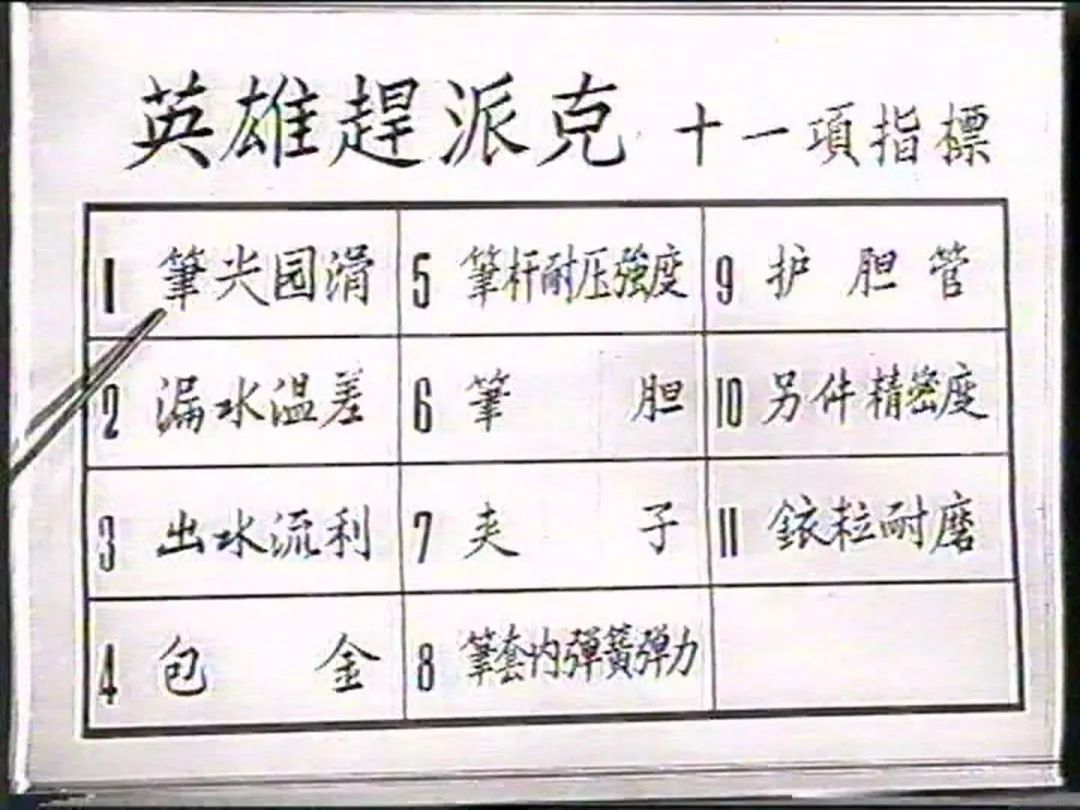 英雄趕派克 十一項指標
1 筆尖园滑
2 漏水温差
3 出水流利
4 包金
5 筆杆耐压強度
6 筆胆
7 夹子
8 筆套内弹簧弹力
9 护胆管
10 另件精密度
11 銥粒耐磨